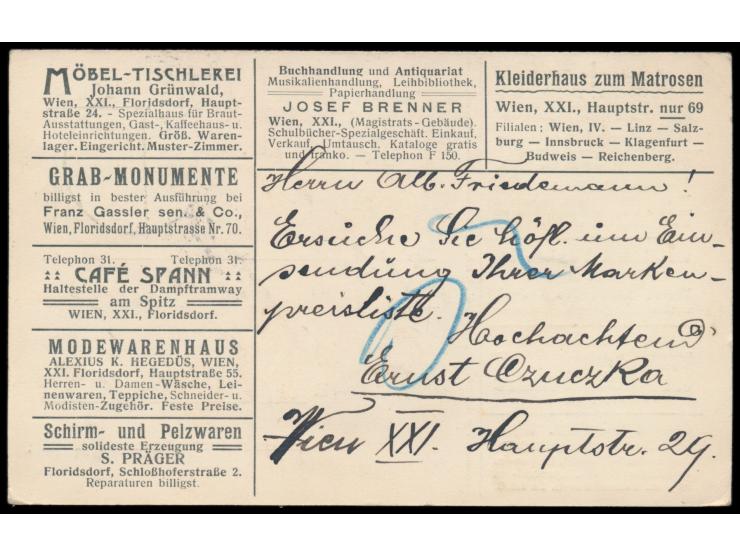 MÖBEL-TISCHLEREI
Johann Grünwald,
Wien, XXI., Floridsdorf, Haupt-
straße 24. - Spezialhaus für Braut-
Ausstattungen, Gast-, Kaffeehaus- u.
Hoteleinrichtungen. Größ. Waren-
lager. Eingericht. Muster-Zimmer.
GRAB-MONUMENTE
billigst in bester Ausführung bei
Franz Gassler sen. & Co.,
Wien, Floridsdorf, Hauptstrasse Nr. 70.
Telephon 31. Telephon 31.
CAFÉ SPANN
Haltestelle der Dampftramway
am Spitz
WIEN, XXI., Floridsdorf.
MODEWARENHAUS
ALEXIUS K. HEGEDÜS, WIEN,
XXI. Floridsdorf, Hauptstraße 55.
Herren- u. Damen-Wäsche, Lei-
nenwaren, Teppiche, Schneider- u.
Modisten-Zugehör. Feste Preise.
Schirm- und Pelzwaren
solideste Erzeugung
S. PRÄGER
Floridsdorf, Schloßhoferstraße 2.
Reparaturen billigst.
Buchhandlung und Antiquariat
Musikalienhandlung, Leihbibliothek,
Papierhandlung
JOSEF BRENNER
Wien, XXI., (Magistrats-Gebäude).
Schulbücher-Spezialgeschäft. Einkauf,
Verkauf, Umtausch. Kataloge gratis
und franko. — Telephon F 150.
Kleiderhaus zum Matrosen
Wien, XXI., Hauptstr. nur 69
Filialen: Wien, IV. — Linz — Salz-
burg — Innsbruck — Klagenfurt —
Budweis — Reichenberg.
Herrn Alb. Friedemann!
Ersuche Sie höfl. um Ein-
sendung Ihrer Marken-
preisliste.
Hochachtend
Ernst Czuczka
Wien XXI. Hauptstr. 29.